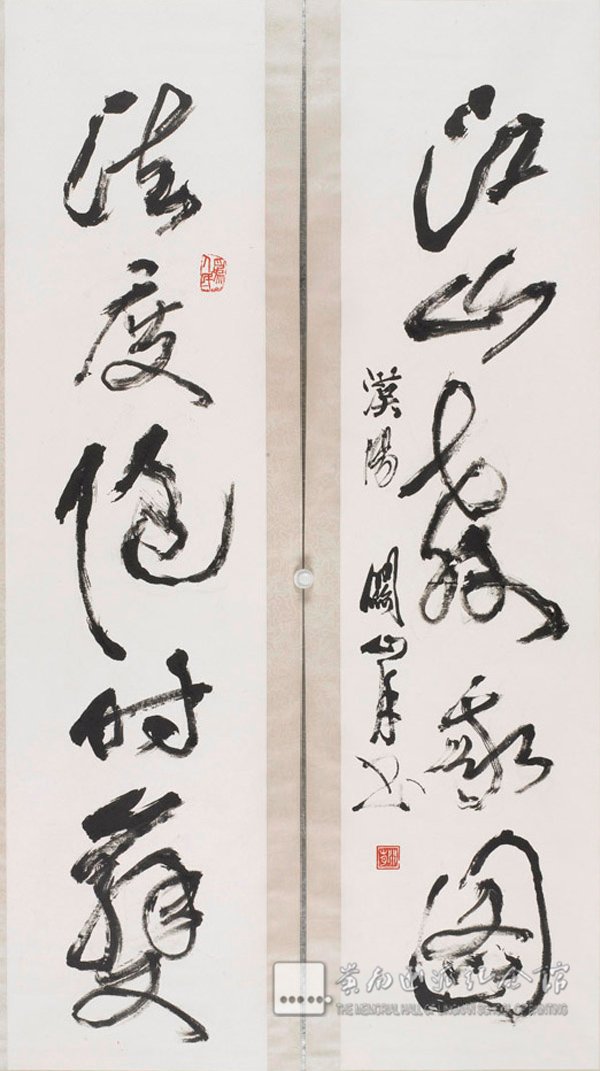 江山教我图
漠陽 關山月书
法度随时變
嶺南画派纪念馆
THE MEMORIAL HALL OF LINGNAN SCHOOL OF PAINTING